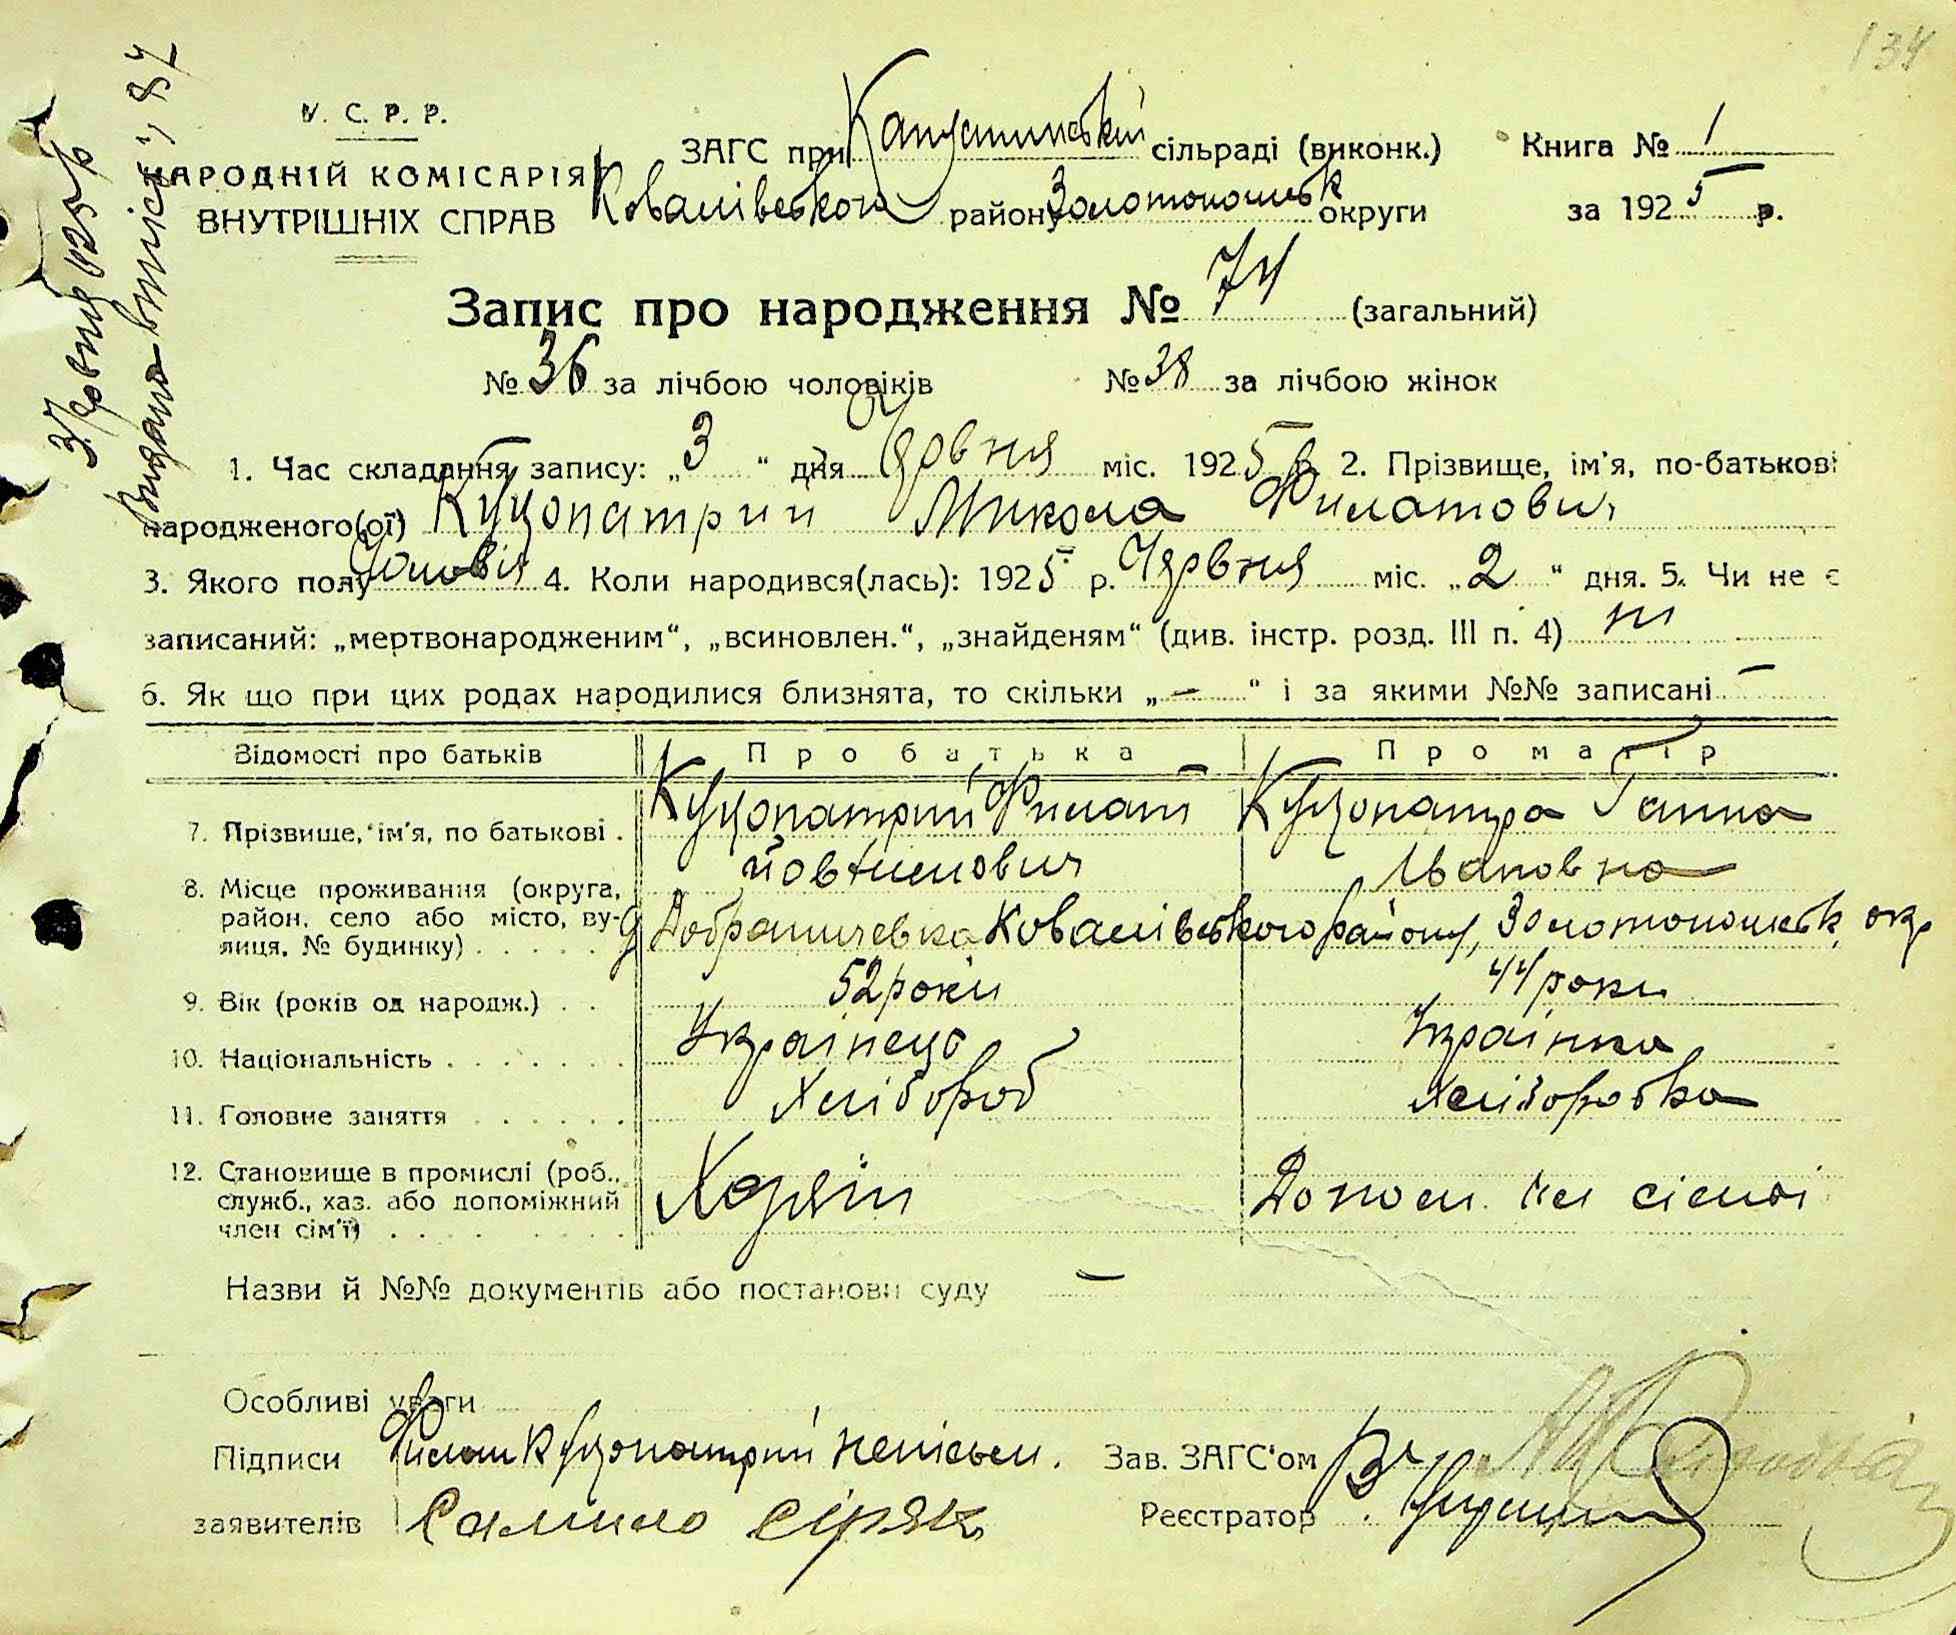 134
У. С. Р. Р.
НАРОДНІЙ КОМІСАРІЯ
ВНУТРІШНІХ СПРАВ
ЗАГС при Капустинській сільраді (виконк.)
Ковалівського району Золотоношськ округи
Книга № 1
за 1925 р.
3/Червня 1925 р
Видано витпісь, 87
Запис про народження № 74 (загальний)
№ 36 за лічбою чоловіків № 38 за лічбою жінок
1. Час складання запису: „3“ дня Червня міс. 1925 р. 2. Прізвище, ім'я, по-батькові
народженого(ої) Куцопатрий Микола Филатович
3. Якого полу Чоловіч 4. Коли народився(лась): 1925 р. Червня міс. „2“ дня. 5. Чи не є
записаний: „мертвонародженим“, „всиновлен.“, „знайденям“ (див. інстр. розд. III п. 4) ні
6. Як що при цих родах народилися близнята, то скільки „—“ і за якими №№ записані —
Відомості про батьків Про батька Про матір
7. Прізвище, ім'я, по батькові . Куцопатрий Филат Куцопатра Ганна
Йовтихович Івановна
8. Місце проживання (округа,
район, село або місто, ву-
лиця, № будинку) . . . . . Добраничевка Ковалівського району, Золотоношськ. окр
9. Вік (років од народж.) . . 52 роки 44 роки
10. Національність . . . . . . . Українець Українка
11. Головне заняття . . . . . . Хлібороб Хліборобка
12. Становище в промислі (роб.,
служб., хаз. або допоміжний
член сім'ї) . . . . . . . . Хазяїн Допом. чл сімьі
Назви й №№ документів або постанови суду —
Особливі уваги
Підписи Филат Куцопатрий неписьм.
заявителів Самило Сіряк
Зав. ЗАГС'ом
Реєстратор